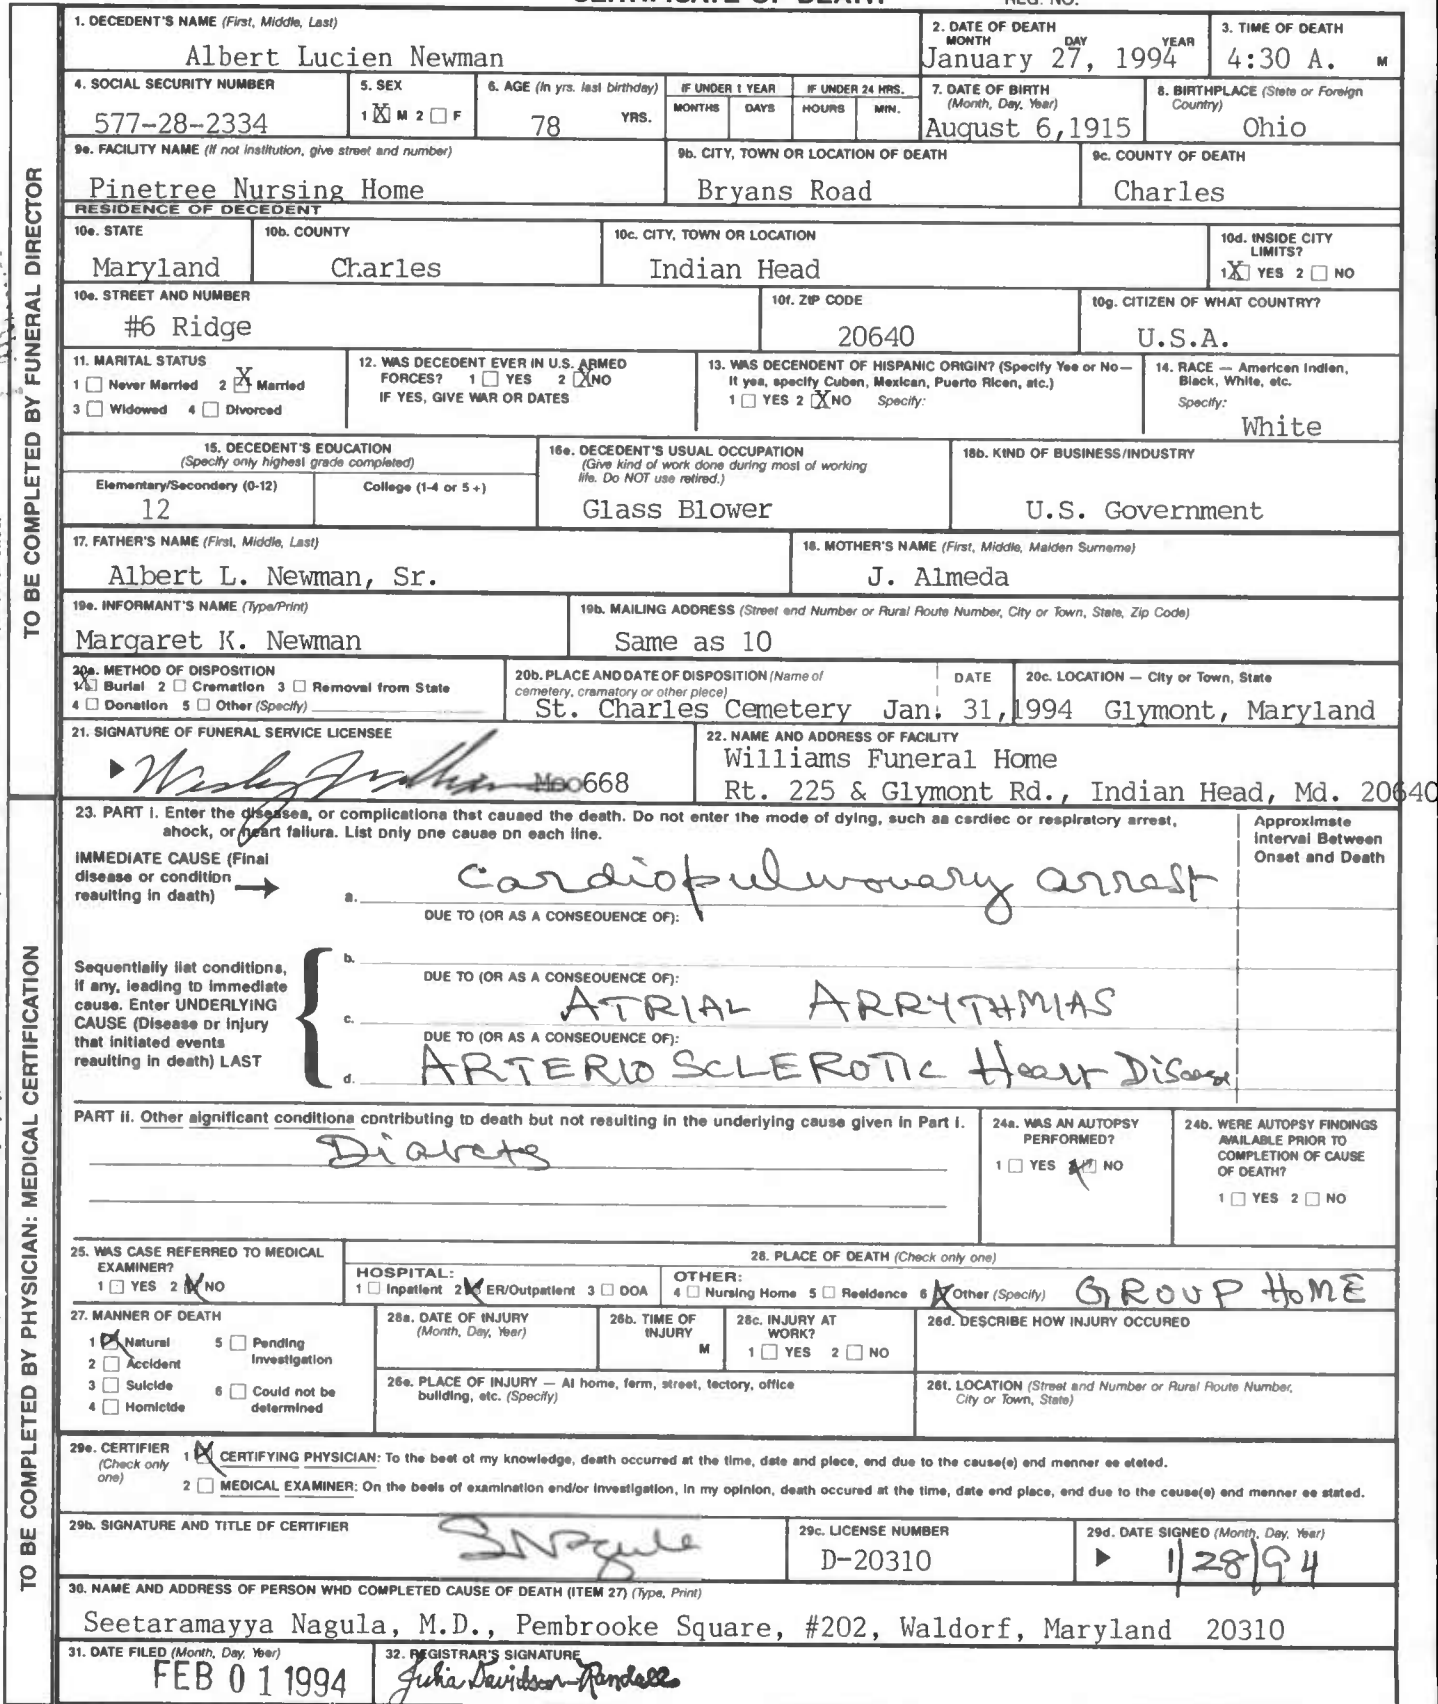 CERTIFICATE OF DEATH REG. NO.
TO BE COMPLETED BY FUNERAL DIRECTOR
1. DECEDENT'S NAME (First, Middle, Last)
Albert Lucien Newman
2. DATE OF DEATH
MONTH DAY YEAR
January 27, 1994
3. TIME OF DEATH
4:30 A. M
4. SOCIAL SECURITY NUMBER
577-28-2334
5. SEX
1 X M 2 F
6. AGE (In yrs. last birthday)
78 YRS.
IF UNDER 1 YEAR
MONTHS DAYS
IF UNDER 24 HRS.
HOURS MIN.
7. DATE OF BIRTH
(Month, Day, Year)
August 6,1915
8. BIRTHPLACE (State or Foreign
Country)
Ohio
9e. FACILITY NAME (If not institution, give street and number)
Pinetree Nursing Home
9b. CITY, TOWN OR LOCATION OF DEATH
Bryans Road
9c. COUNTY OF DEATH
Charles
RESIDENCE OF DECEDENT
10e. STATE
Maryland
10b. COUNTY
Charles
10c. CITY, TOWN OR LOCATION
Indian Head
10d. INSIDE CITY
LIMITS?
1 X YES 2 NO
10e. STREET AND NUMBER
#6 Ridge
10f. ZIP CODE
20640
10g. CITIZEN OF WHAT COUNTRY?
U.S.A.
11. MARITAL STATUS
1 Never Married 2 X Married
3 Widowed 4 Divorced
12. WAS DECEDENT EVER IN U.S. ARMED
FORCES? 1 YES 2 X NO
IF YES, GIVE WAR OR DATES
13. WAS DECENDENT OF HISPANIC ORIGIN? (Specify Yee or No—
It yea, specify Cuben, Mexican, Puerto Ricen, etc.)
1 YES 2 X NO Specify:
14. RACE — American Indien,
Black, White, etc.
Specify:
White
15. DECEDENT'S EDUCATION
(Specify only highest grade completed)
Elementary/Secondery (0-12)
12
College (1-4 or 5 +)
16e. DECEDENT'S USUAL OCCUPATION
(Give kind of work done during most of working
life. Do NOT use retired.)
Glass Blower
18b. KIND OF BUSINESS/INDUSTRY
U.S. Government
17. FATHER'S NAME (First, Middle, Last)
Albert L. Newman, Sr.
18. MOTHER'S NAME (First, Middle, Maiden Surneme)
J. Almeda
19e. INFORMANT'S NAME (Type/Print)
Margaret K. Newman
19b. MAILING ADDRESS (Street end Number or Rural Route Number, City or Town, State, Zip Code)
Same as 10
20a. METHOD OF DISPOSITION
1 X Burial 2 Cremation 3 Removal from State
4 Donation 5 Other (Specify)
20b. PLACE AND DATE OF DISPOSITION (Name of
cemetery, crematory or other plece)
DATE
St. Charles Cemetery Jan. 31,1994
20c. LOCATION — City or Town, State
Glymont, Maryland
21. SIGNATURE OF FUNERAL SERVICE LICENSEE
Moo668
22. NAME AND ADDRESS OF FACILITY
Williams Funeral Home
Rt. 225 & Glymont Rd., Indian Head, Md. 20640
TO BE COMPLETED BY PHYSICIAN: MEDICAL CERTIFICATION
23. PART I. Enter the diseases, or complications that caused the death. Do not enter the mode of dying, such aa cardiec or respiratory arrest,
ahock, or heart failura. List only one cauae on each line.
Approximste
Interval Between
Onset and Death
IMMEDIATE CAUSE (Final
disease or condition
reaulting in daath)
a. Cardiopulmonary arrest
DUE TO (OR AS A CONSEQUENCE OF):
Sequentially liat conditions,
if any, leading to immediate
cause. Enter UNDERLYING
CAUSE (Disease or injury
that initiated events
reaulting in death) LAST
b.
DUE TO (OR AS A CONSEQUENCE OF):
c. ATRIAL ARRYTHMIAS
DUE TO (OR AS A CONSEQUENCE OF):
d. ARTERIO SCLEROTIC Heart Disease
PART ii. Other aignificant conditiona contributing to death but not resulting in the underlying cause given in Part I.
Diabetes
24a. WAS AN AUTOPSY
PERFORMED?
1 YES 2 X NO
24b. WERE AUTOPSY FINDINGS
AVAILABLE PRIOR TO
COMPLETION OF CAUSE
OF DEATH?
1 YES 2 NO
25. WAS CASE REFERRED TO MEDICAL
EXAMINER?
1 YES 2 X NO
28. PLACE OF DEATH (Check only one)
HOSPITAL:
1 Inpatient 2 X ER/Outpatient 3 DOA
OTHER:
4 Nursing Home 5 Reeldence 6 X Other (Specify) GROUP HOME
27. MANNER OF DEATH
1 X Natural 5 Pending
Investigation
2 Accident
3 Suicide 6 Could not be
determined
4 Homicide
28a. DATE OF INJURY
(Month, Day, Year)
26b. TIME OF
INJURY
M
26c. INJURY AT
WORK?
1 YES 2 NO
26d. DESCRIBE HOW INJURY OCCURED
26e. PLACE OF INJURY — Al home, ferm, street, tectory, office
building, etc. (Specify)
261. LOCATION (Street and Number or Rural Route Number,
City or Town, State)
29e. CERTIFIER
(Check only
one)
1 X CERTIFYING PHYSICIAN: To the beet ot my knowledge, death occurred at the time, date and plece, end due to the cause(e) end menner ee eteted.
2 MEDICAL EXAMINER: On the beels of examination end/or investigation, in my opinion, death occured at the time, date end place, end due to the ceuse(e) end menner ee stated.
29b. SIGNATURE AND TITLE OF CERTIFIER
SNagula
29c. LICENSE NUMBER
D-20310
29d. DATE SIGNED (Month, Day, Year)
1/28/94
30. NAME AND ADDRESS OF PERSON WHO COMPLETED CAUSE OF DEATH (ITEM 27) (Type, Print)
Seetaramayya Nagula, M.D., Pembrooke Square, #202, Waldorf, Maryland 20310
31. DATE FILED (Month, Day, Year)
FEB 01 1994
32. REGISTRAR'S SIGNATURE
Julia Davidson-Randall